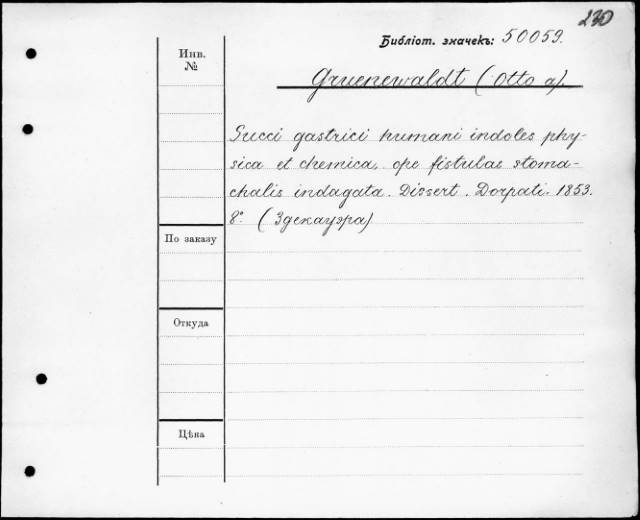 230
Библіот. значекъ: 50059.
Инв.
№
Gruenewaldt (Otto a).
Succi gastrici humani indoles phy-
sica et chemica, ope fistulas stoma-
chalis indagata. Dissert. Dorpati. 1853.
8º. (Здекауэра)
По заказу
Откуда
Цѣна